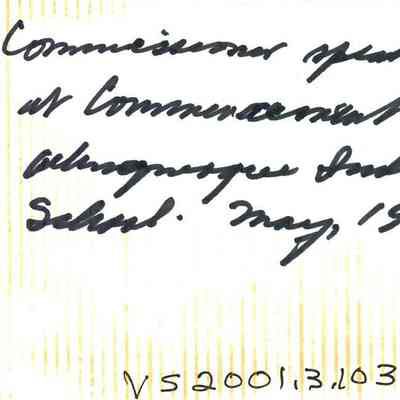 Commissioner spea
at Commencement
Albuquerque Ind
School. May, 19
VS2001.3.103